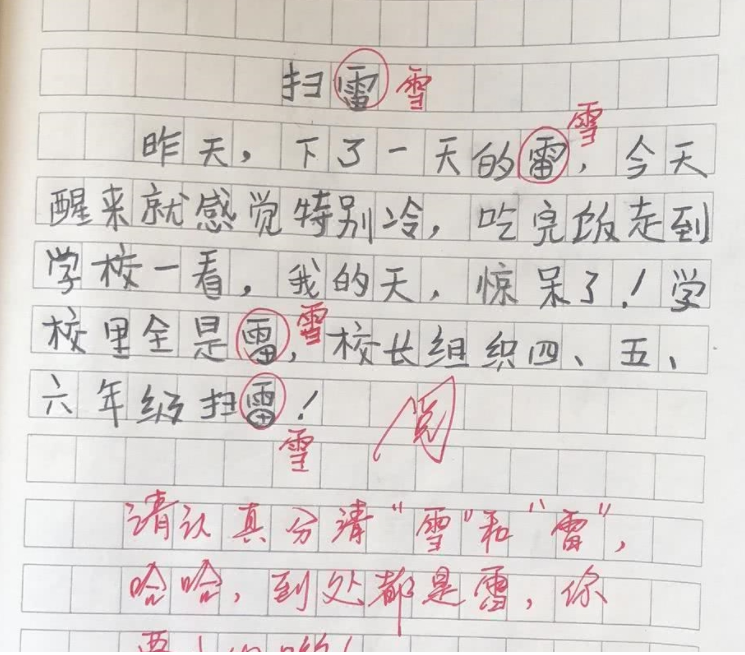 扫雷雪
雪
昨天，下了一天的雷，今天
醒来就感觉特别冷，吃完饭走到
学校一看，我的天，惊呆了！学
校里全是雷，雪校长组织四、五、
六年级扫雷！阅
雪
请认真分请“雪”和“雷”，
哈哈，到处都是雷，你